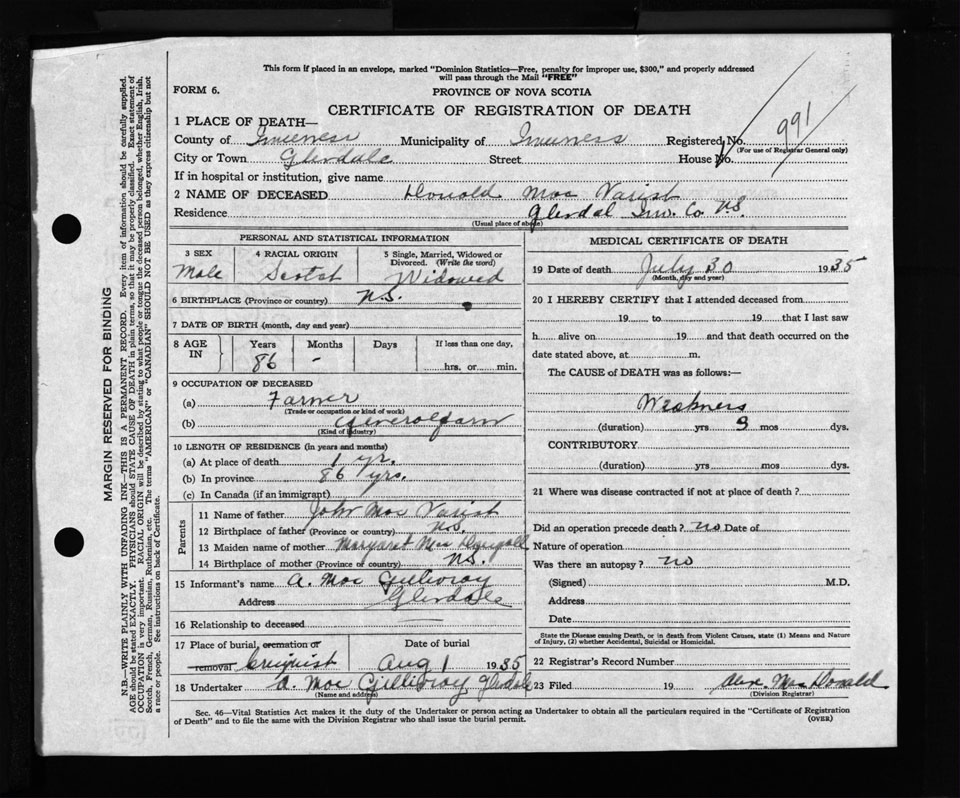 This form if placed in an envelope, marked "Dominion Statistics—Free, penalty for improper use, $300," and properly addressed
will pass through the Mail "FREE"
FORM 6.
PROVINCE OF NOVA SCOTIA
CERTIFICATE OF REGISTRATION OF DEATH
991
1 PLACE OF DEATH—
County of Inverness Municipality of Inverness Registered No.
(For use of Registrar General only)
City or Town Glendale Street House No.
If in hospital or institution, give name
2 NAME OF DECEASED Donald Mac Varish
Residence Glendal Inv. Co. N.S.
(Usual place of abode)
PERSONAL AND STATISTICAL INFORMATION
3 SEX 4 RACIAL ORIGIN 5 Single, Married, Widowed or Divorced. (Write the word)
Male Scotch Widowed
6 BIRTHPLACE (Province or country) N.S.
7 DATE OF BIRTH (month, day and year)
8 AGE IN Years Months Days If less than one day,
86 - hrs. or min.
9 OCCUPATION OF DECEASED
(a) Farmer
(Trade or occupation or kind of work)
(b) General farm
(Kind of industry)
10 LENGTH OF RESIDENCE (in years and months)
(a) At place of death 1 yr.
(b) In province 86 yrs.
(c) In Canada (if an immigrant)
Parents
11 Name of father John Mac Varish
12 Birthplace of father (Province or country) N.S.
13 Maiden name of mother Margaret Mac Dougall
14 Birthplace of mother (Province or country) N.S.
15 Informant's name A. Mac Gillivray
Address Glendale
16 Relationship to deceased
17 Place of burial, cremation or removal Date of burial
Aug 1 1935
18 Undertaker A. Mac Gillivray Glendale
(Name and address)
MEDICAL CERTIFICATE OF DEATH
19 Date of death July 30 1935
(Month, day and year)
20 I HEREBY CERTIFY that I attended deceased from
19 to 19 that I last saw
h alive on 19 and that death occurred on the
date stated above, at m.
The CAUSE of DEATH was as follows:—
Weakness
(duration) yrs 9 mos dys.
CONTRIBUTORY
(duration) yrs mos dys.
21 Where was disease contracted if not at place of death?
Did an operation precede death? no Date of
Nature of operation
Was there an autopsy? no
(Signed) M.D.
Address
Date
State the Disease causing Death, or in death from Violent Causes, state (1) Means and Nature
of Injury, (2) whether Accidental, Suicidal or Homicidal.
22 Registrar's Record Number
23 Filed 19 Alex. Mac Donald
(Division Registrar)
Sec. 46—Vital Statistics Act makes it the duty of the Undertaker or person acting as Undertaker to obtain all the particulars required in the "Certificate of Registration
of Death" and to file the same with the Division Registrar who shall issue the burial permit.
(OVER)
MARGIN RESERVED FOR BINDING
N.B.—WRITE PLAINLY WITH UNFADING INK—THIS IS A PERMANENT RECORD. Every item of information should be carefully supplied.
AGE should be stated EXACTLY. PHYSICIANS should STATE CAUSE OF DEATH in plain terms, so that it may be properly classified. Exact statement of
OCCUPATION is very important. RACIAL ORIGIN will be described by stating to what people or tongue the deceased person belonged, whether English, Irish,
Scotch, French, German, Russian, Ruthenian, etc. The terms "AMERICAN" or "CANADIAN" SHOULD NOT BE USED as they express citizenship but not
a race or people. See instructions on back of Certificate.